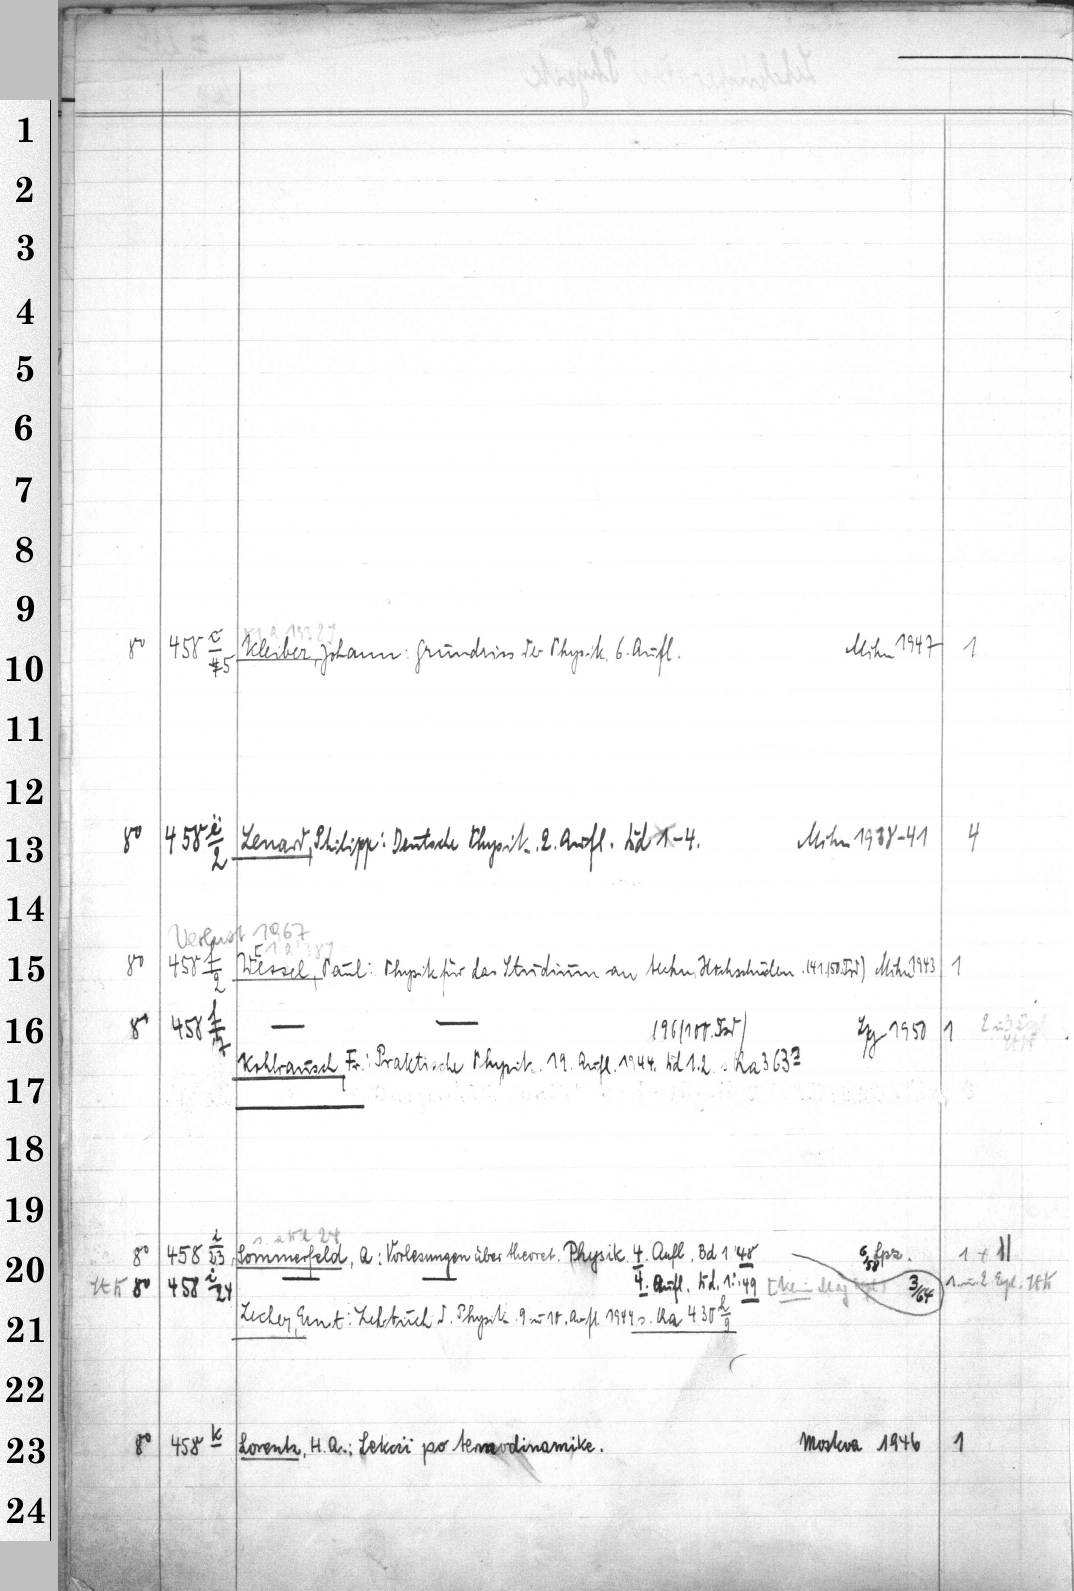 1
2
3
4
5
6
7
8
9
10
11
12
13
14
15
16
17
18
19
20
21
22
23
24
8° 458 45 Kleiber, Johann: Grundriss der Physik. 6. Aufl. Mchn 1947 1
8° 458 2 Lenard, Philipp: Deutsche Physik. 2. Aufl. Bd 1-4. Mchn 1938-41 4
Verlust 1967
8° 458 2 Wessel, Paul: Physik für das Studium an techn. Hochschulen. (41./50. Tsd) Mchn 1943 1
8° 458 — — (96/100. Tsd) Lpg 1950 1
Kohlrausch, Fr.: Praktische Physik. 19. Aufl. 1944. Bd 1.2 s. Ka 363
8° 458 i 23 Sommerfeld, A: Vorlesungen über theoret. Physik 4. Aufl. Bd 1 '48 Lpz. 1 + 1
8° 458 i 24 — — 4. Aufl. Bd. 1: '49 3/64
Lecher, Ernst: Lehrbuch d. Physik. 9 u 10. Aufl. 1944 s. Ka 430 9
8° 458 k Lorentz, H. A.: Lekcii po termodinamike. Moskva 1946 1